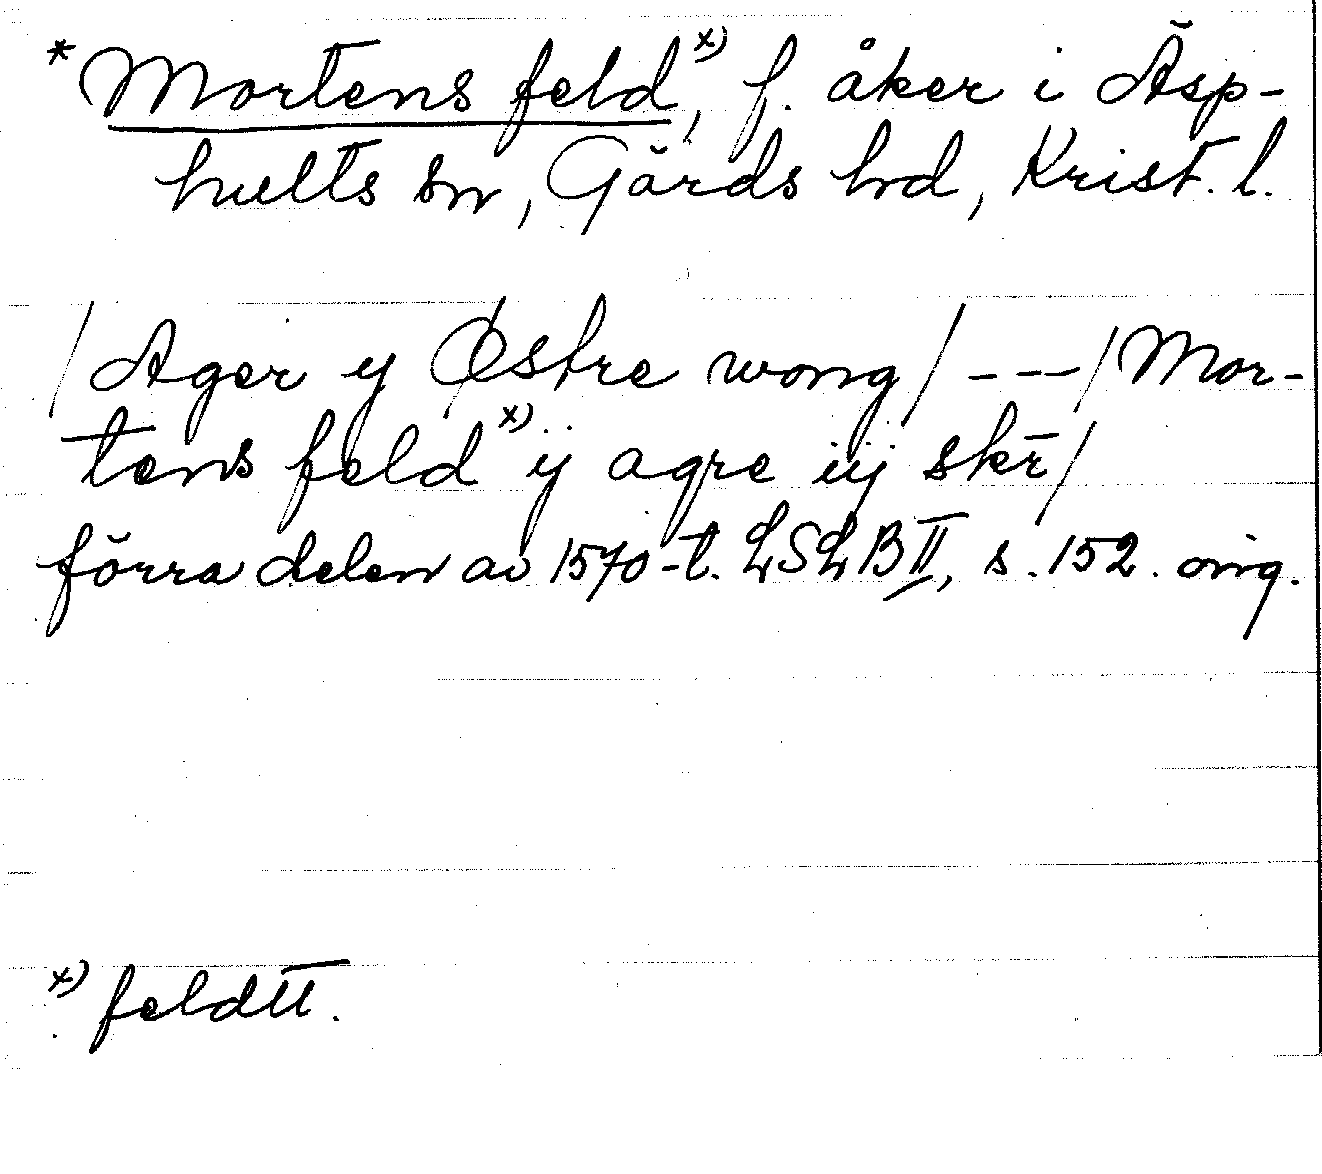 * Mortens feld, x) f. åker i Äsp-
hults sn, Gärds hrd, Krist. l.
/Ager y Østre wong/ ---/Mor-
tens feld x) ÿ agre iij skr̄/
förra delen av 1570-t. LSLB II, s. 152. omg.
x) feldtt.